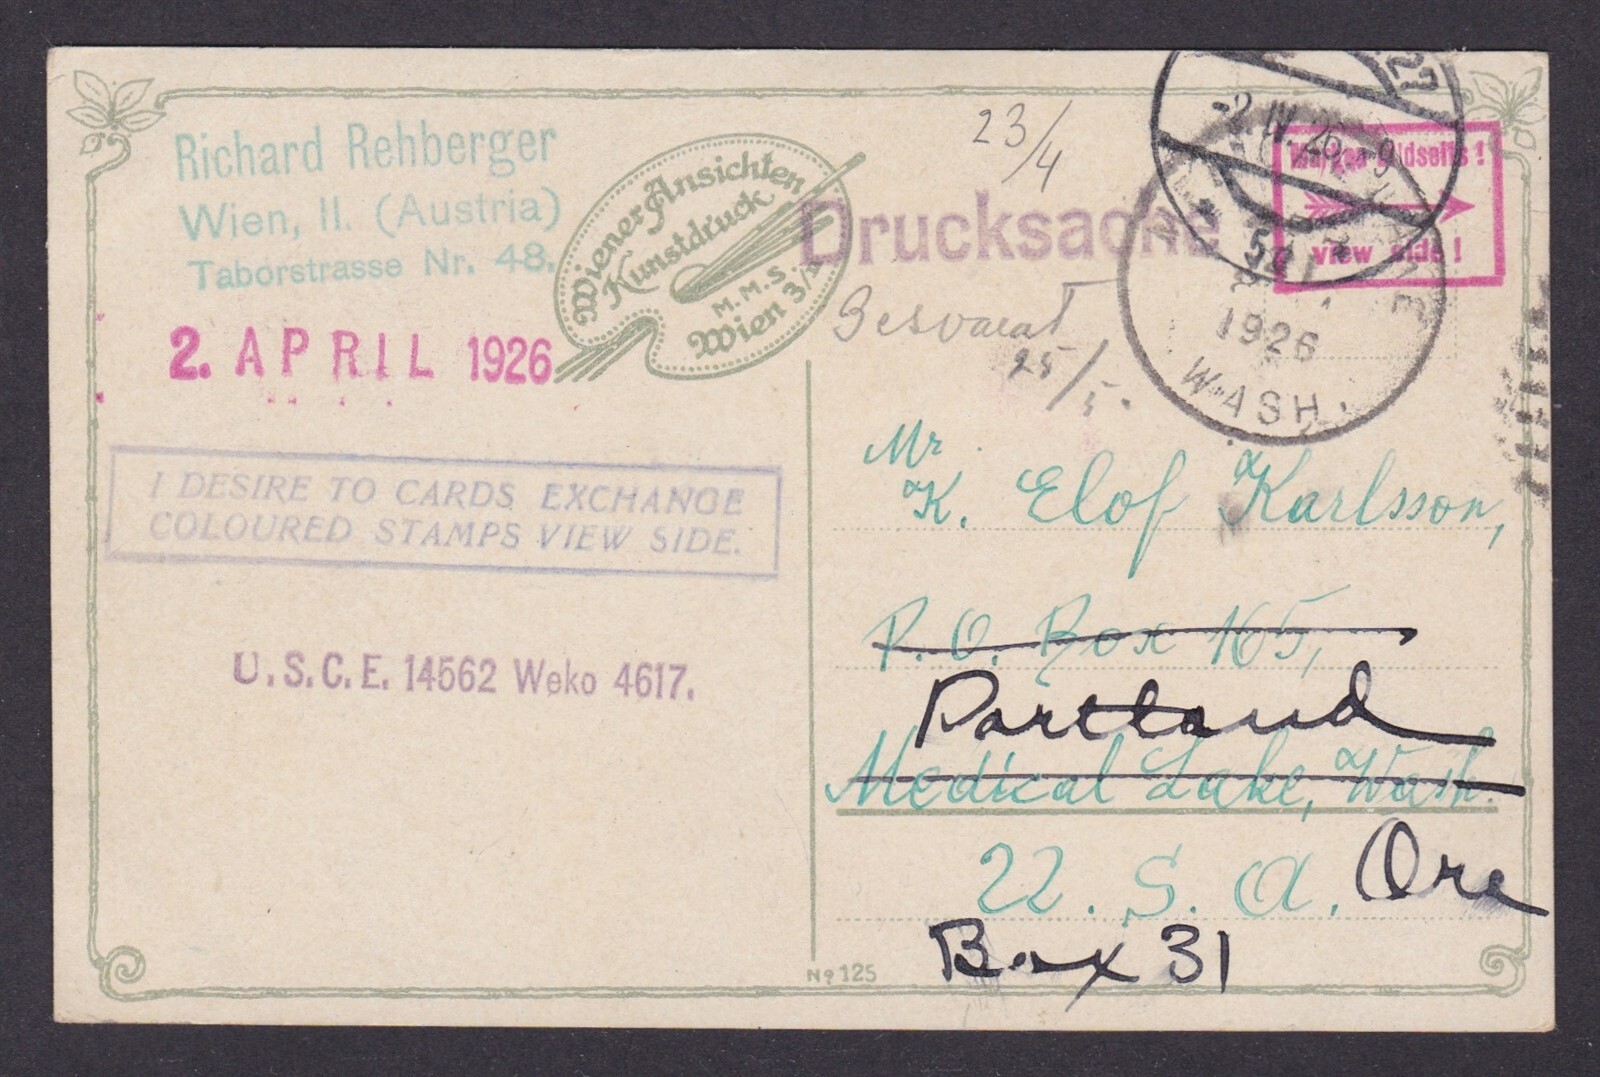 Richard Rehberger
Wien, II. (Austria)
Taborstrasse Nr. 48.
2. APRIL 1926
Wiener Ansichten
Kunstdruck
M.M.S.
Wien 3/2
23/4
Drucksache
Besvarat
25/5.
27
-2.IV.26.-9
Marken Bildseits!
view side!
1926
WASH.
I DESIRE TO CARDS EXCHANGE
COLOURED STAMPS VIEW SIDE.
U.S.C.E. 14562 Weko 4617.
Mr
K. Elof Karlsson,
P.O. Box 165,
Portland
Medical Lake, Wash.
U. S. A. Ore
Box 31
No 125